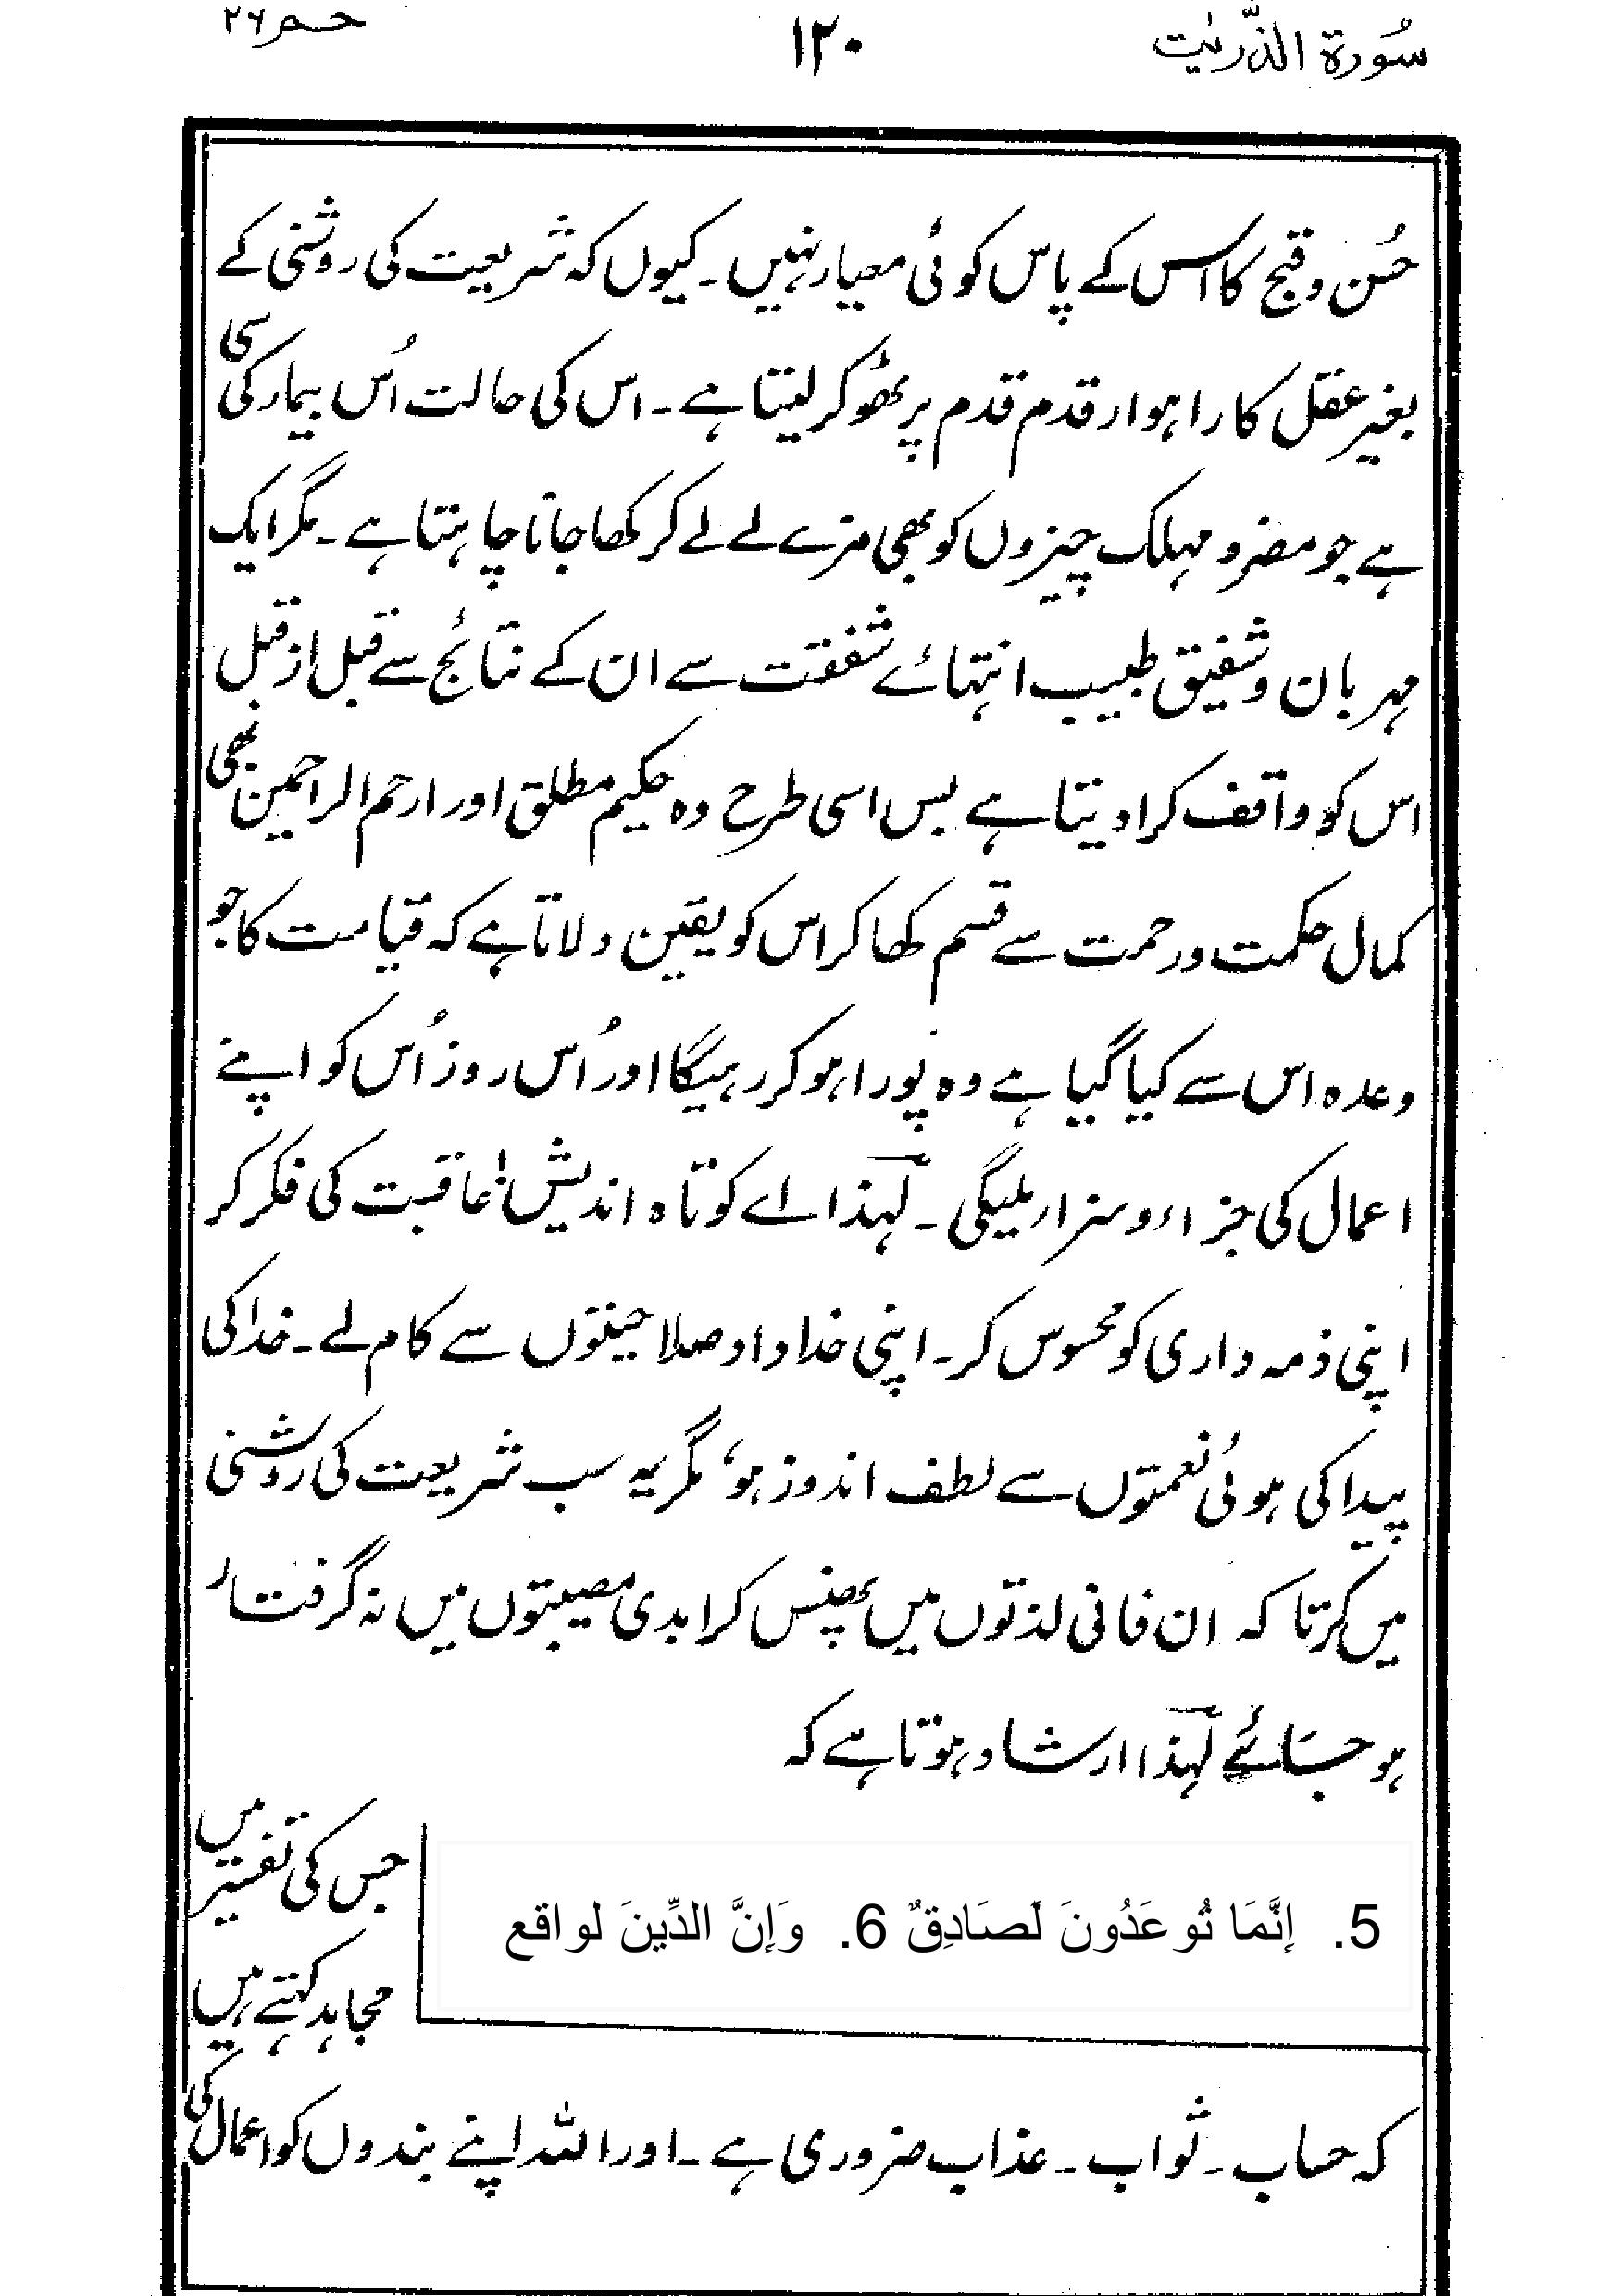 سُورۃ الذّٰریٰت ۱۲۰ حٰمٓ ۲۶
حُسن و قبح کا اس کے پاس کوئی معیار نہیں۔ کیوں کہ شریعت کی روشنی کے
بغیر عقل کا راہوار قدم قدم پر ٹھوکر لیتا ہے۔ اس کی حالت اُس بیمار کی سی
ہے جو مضر و مہلک چیزوں کو بھی مزے لے لے کر کھا جانا چاہتا ہے۔ مگر ایک
مہربان و شفیق طبیب انتہائے شفقت سے ان کے نتائج سے قبل از قبل
اس کو واقف کرا دیتا ہے بس اسی طرح وہ حکیم مطلق اور ارحم الراحمین بھی
کمال حکمت و رحمت سے قسم کھا کر اس کو یقین دلاتا ہے کہ قیامت کا جو
وعدہ اس سے کیا گیا ہے وہ پورا ہو کر رہیگا اور اُس روز اُس کو اپنے
اعمال کی جزاء و سزا ملیگی۔ لہٰذا اے کوتاہ اندیش! عاقبت کی فکر کر
اپنی ذمہ داری کو محسوس کر۔ اپنی خداداد صلاحیتوں سے کام لے۔ خدا کی
پیدا کی ہوئی نعمتوں سے لطف اندوز ہو، مگر یہ سب شریعت کی روشنی
میں کر تا کہ ان فانی لذتوں میں پھنس کر ابدی مصیبتوں میں نہ گرفتار
ہو جائے لہٰذا ارشاد ہوتا ہے کہ
5. إِنَّمَا تُوعَدُونَ لَصَادِقٌ 6. وَإِنَّ الدِّينَ لواقع
جس کی تفسیر میں
مجاہد کہتے ہیں
کہ حساب۔ ثواب۔ عذاب ضروری ہے۔ اور اللہ اپنے بندوں کو اعمال کی